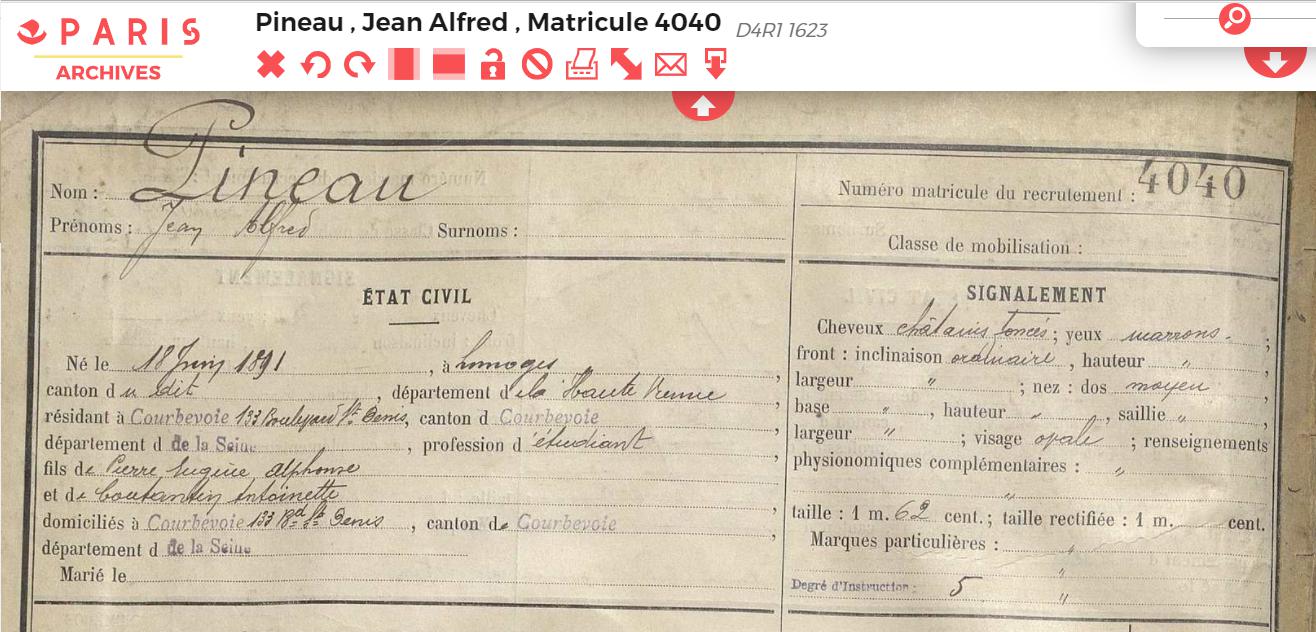 PARIS
ARCHIVES
Pineau , Jean Alfred , Matricule 4040 D4R1 1623
Nom : Pineau
Prénoms : Jean Alfred Surnoms :
Numéro matricule du recrutement : 4040
Classe de mobilisation :
ÉTAT CIVIL
Né le 18 Juin 1891, à Limoges,
canton du dit, département de la Haute Vienne,
résidant à Courbevoie 133 Boulevard St Denis, canton d Courbevoie,
département d de la Seine, profession d'étudiant,
fils de Pierre Eugène alphonse
et de Coutantin antoinette,
domiciliés à Courbevoie 133 Bd St Denis, canton de Courbevoie,
département d de la Seine
Marié le
SIGNALEMENT
Cheveux châtains foncés; yeux marrons;
front : inclinaison ordinaire, hauteur ",
largeur "; nez : dos moyen,
base ", hauteur ", saillie ",
largeur "; visage ovale; renseignements
physionomiques complémentaires : "
"
taille : 1 m. 62 cent.; taille rectifiée : 1 m. cent.
Marques particulières : "
"
Degré d'Instruction : 5 "